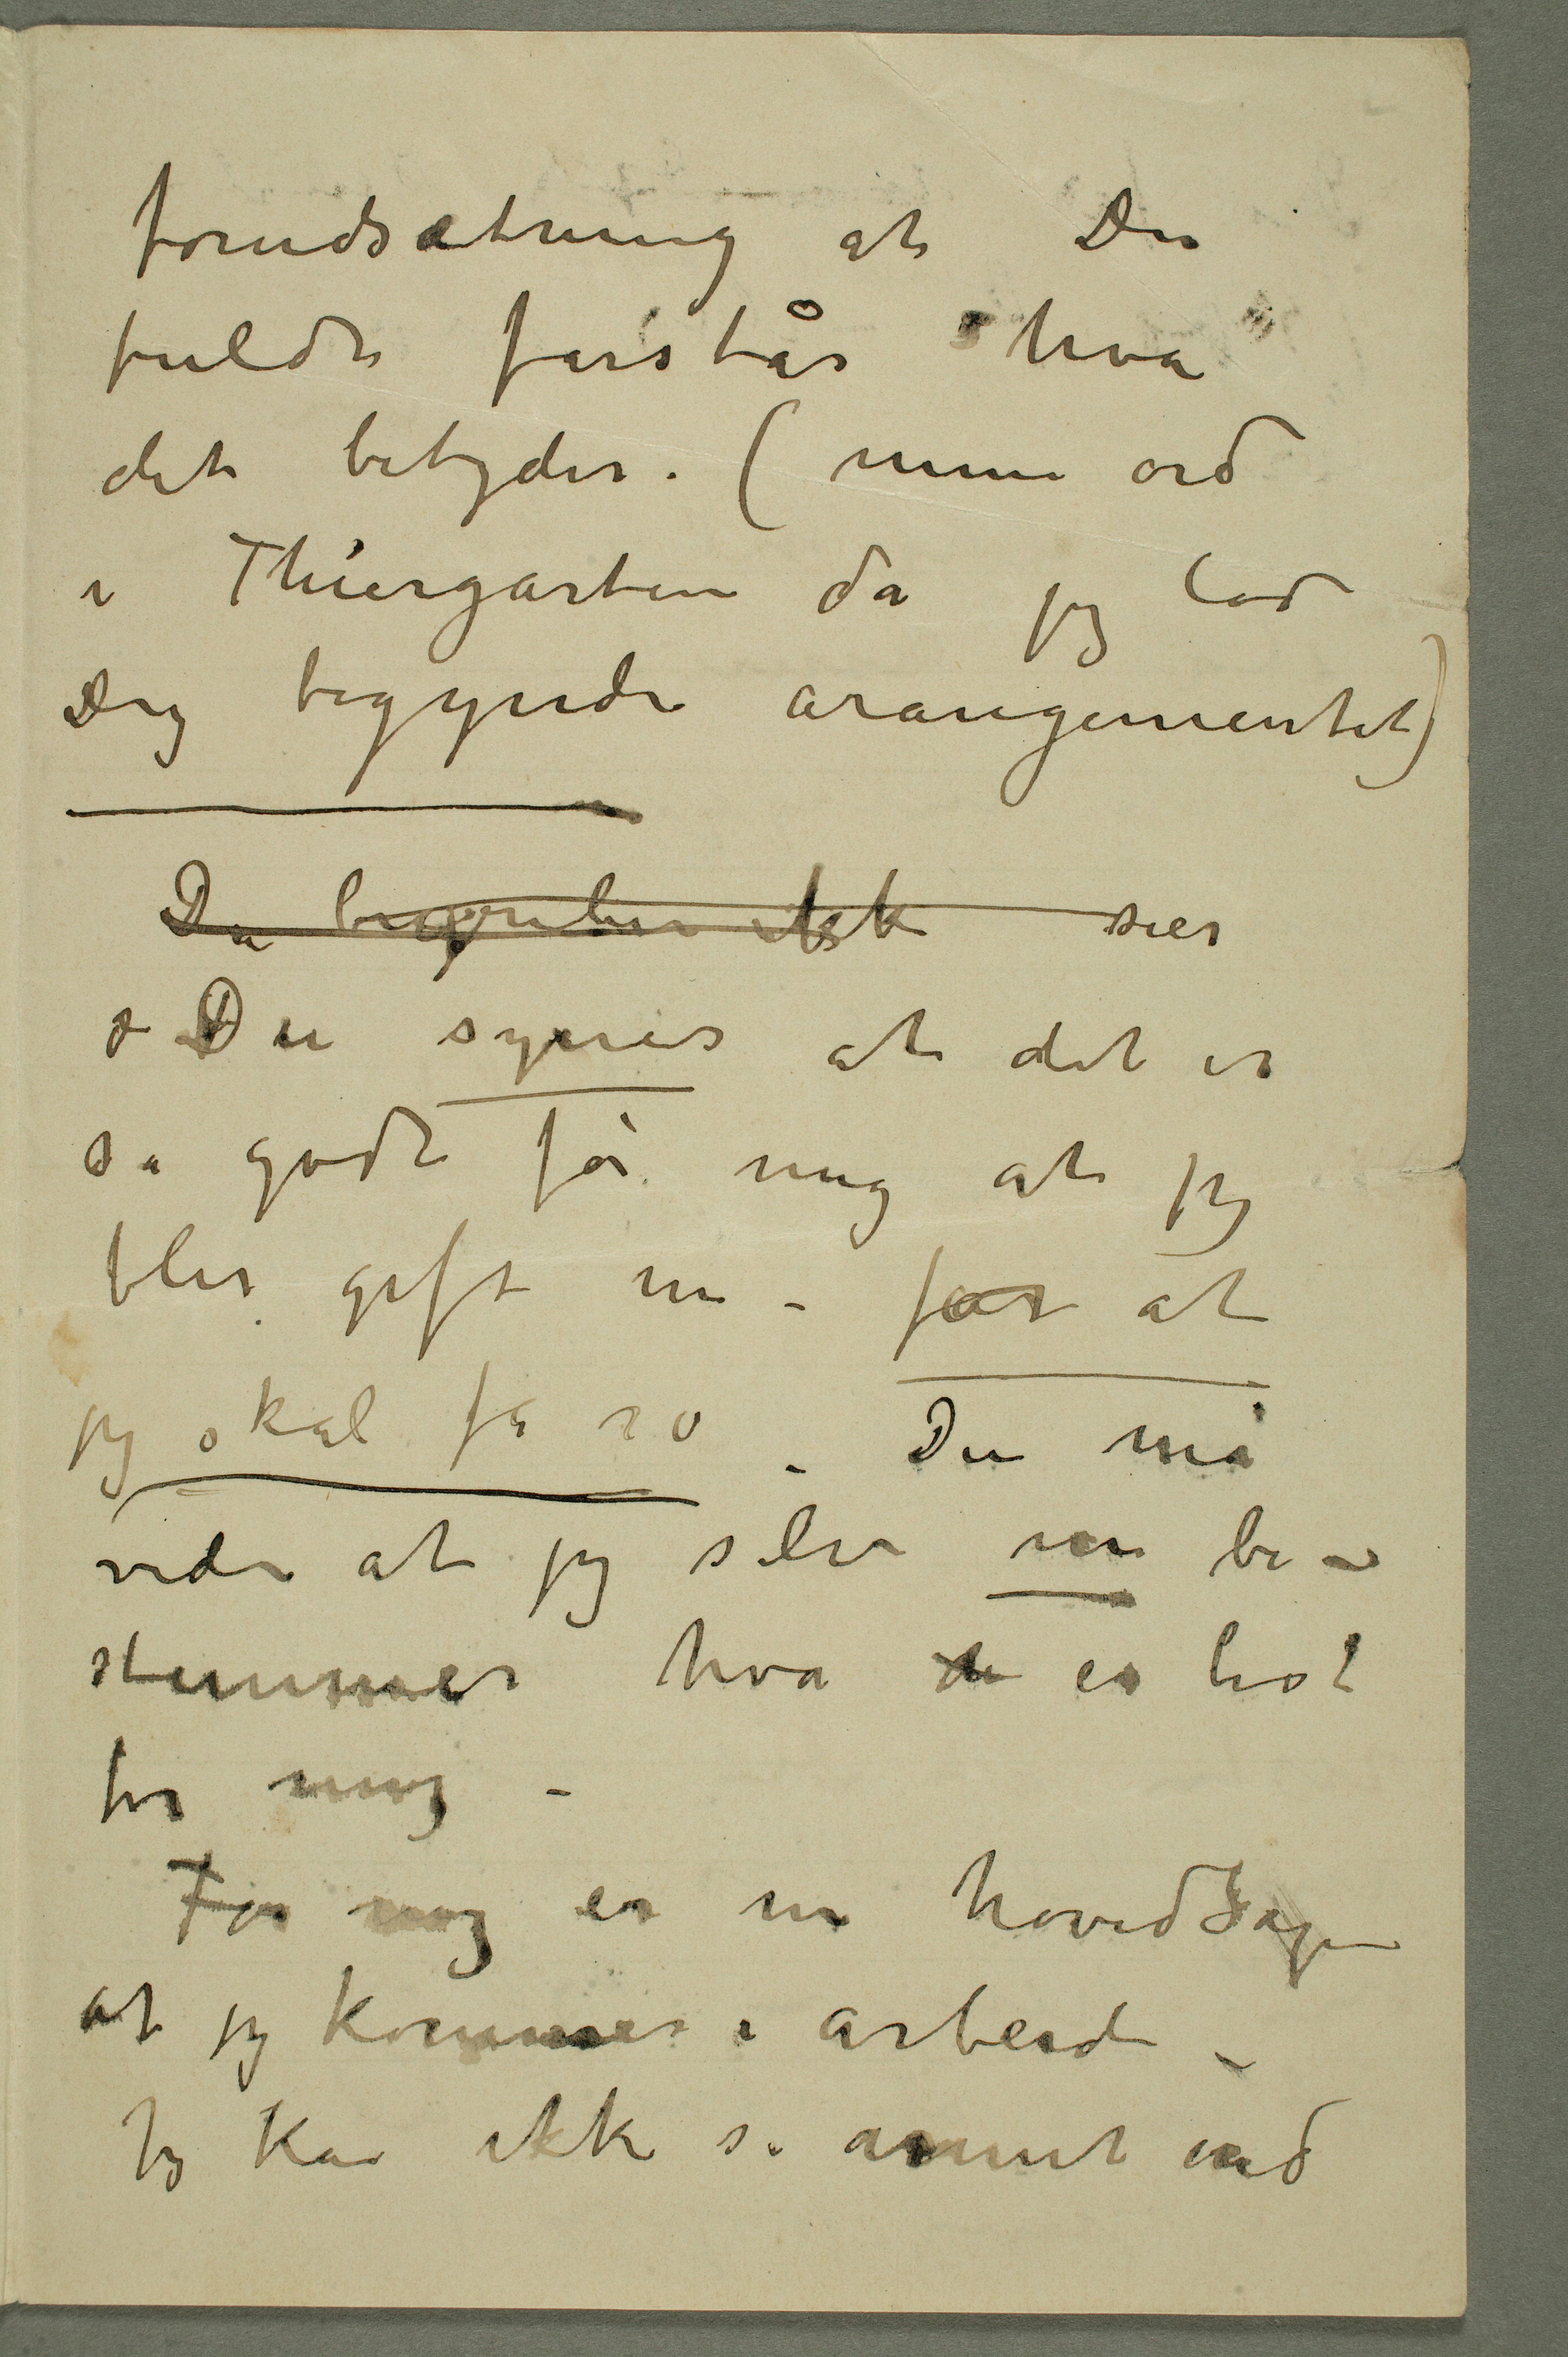 forudsætning at Du
fuldt forstår hva
det betyder. (mine ord
i Thiergarten da jeg lod
Dig begynde arangementet)
Du begriber ikke sier
o Du synes at det er
så godt for mig at jeg
blir gift nu – for at
jeg skal få ro – Du må
vide at jeg selv nu be–
stemmer hva de er best
for mig –
For mig er nu hovedsagen
at jeg kommer i arbeide –
Jeg kan ikke se annet end